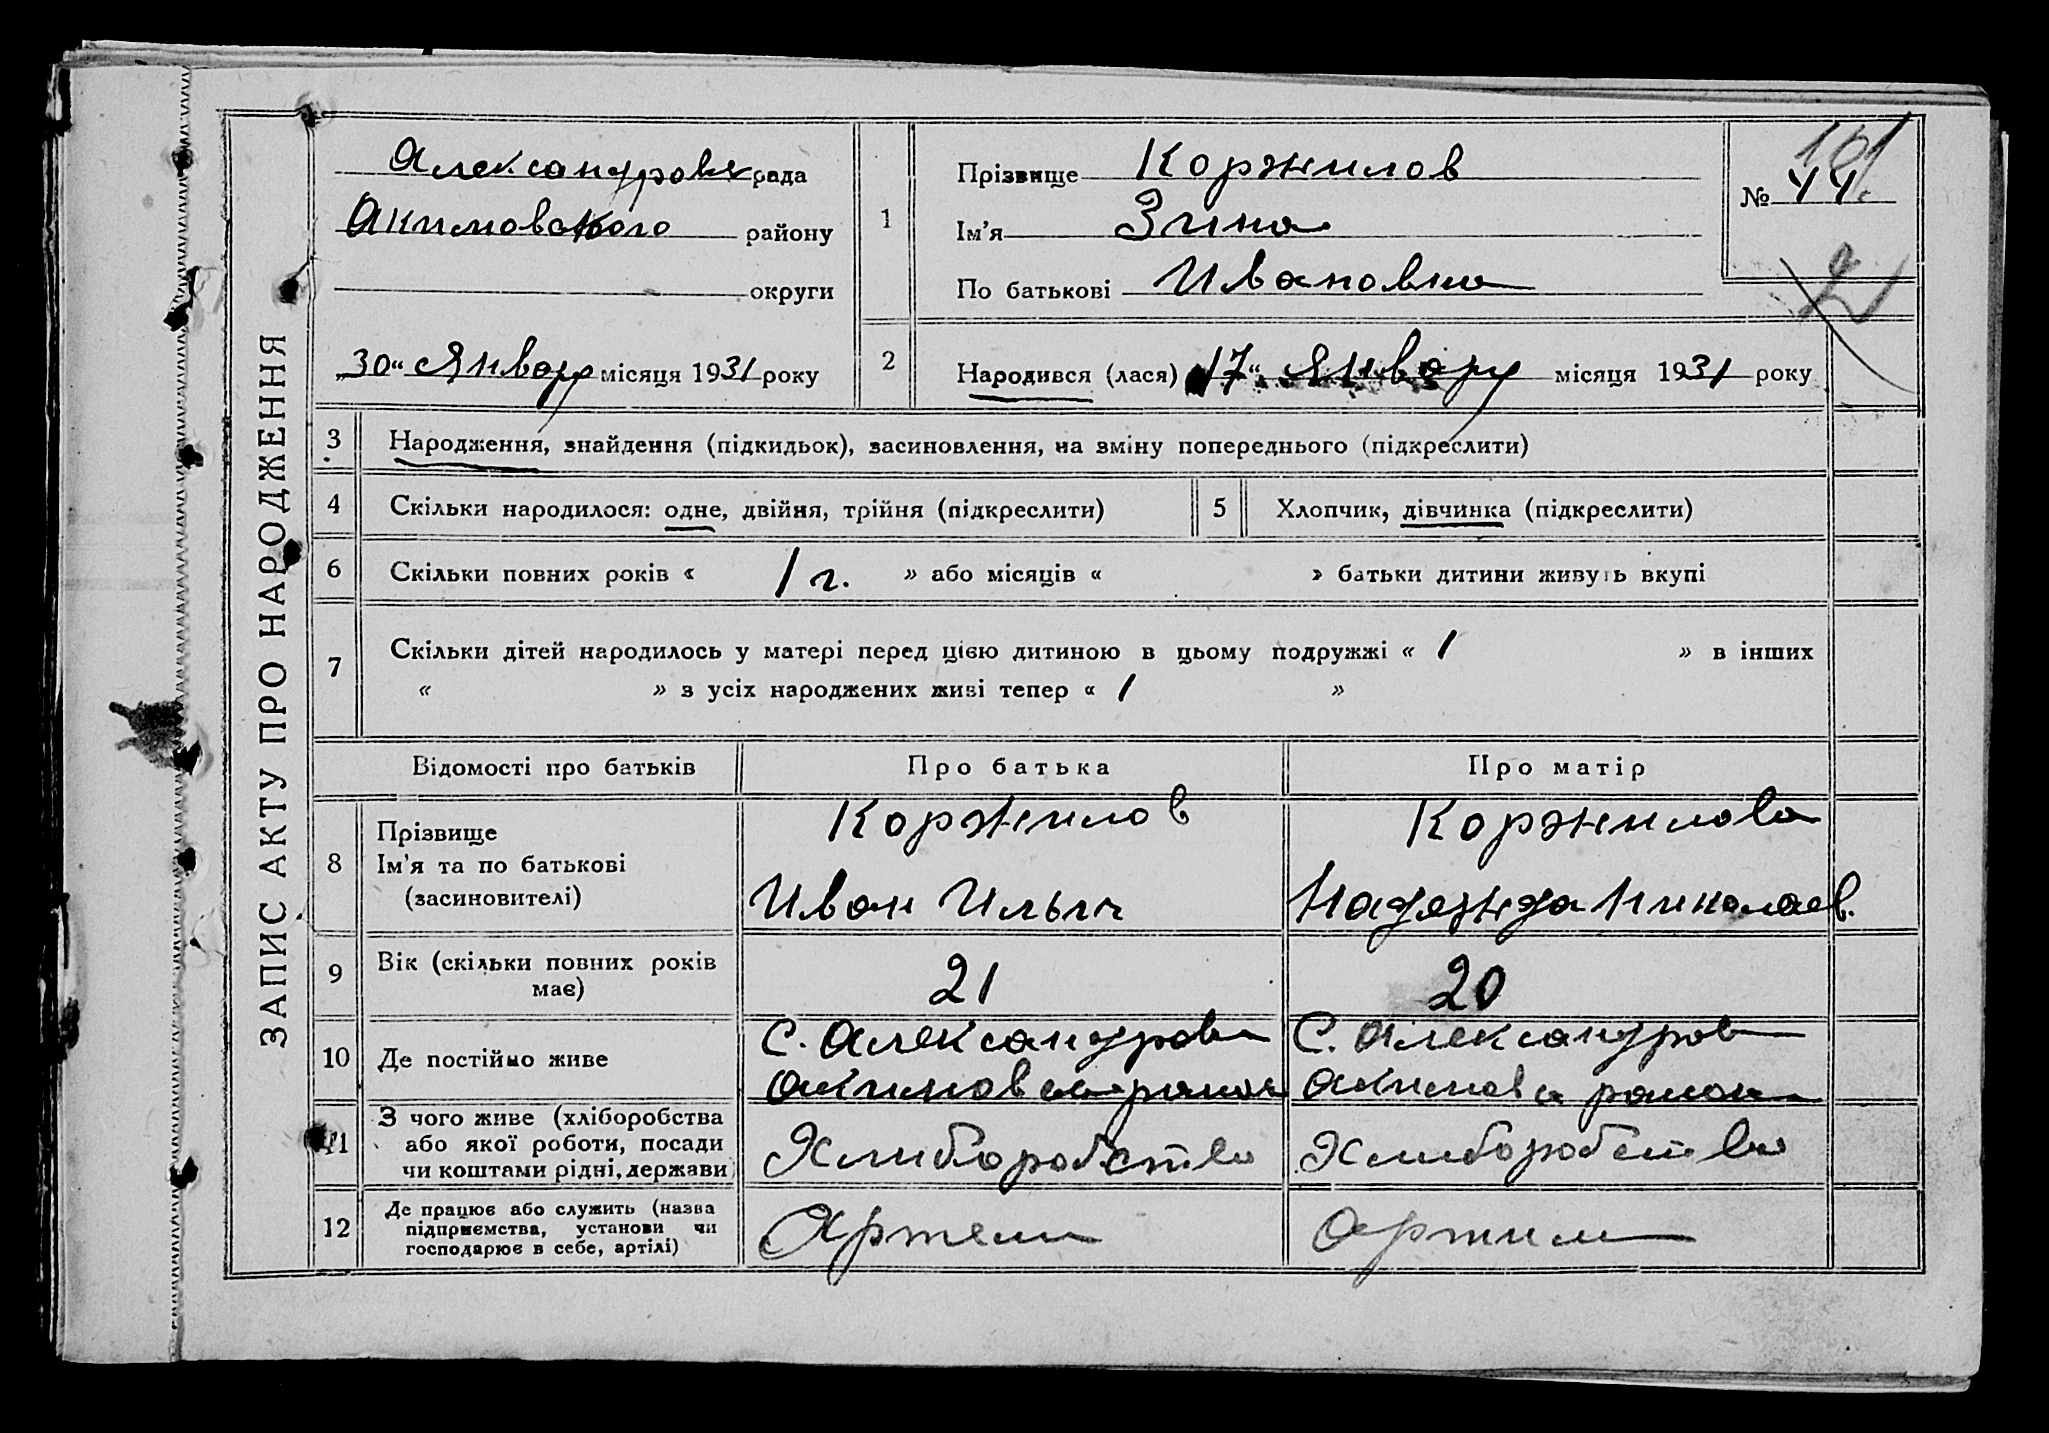 ЗАПИС АКТУ ПРО НАРОДЖЕННЯ
Александровк рада
Акимовского району
округи
„30“ Январ місяця 1931 року
1
Прізвище Коржилов
Ім'я Зина
По батькові Ивановна
101
№ 44
2
Народився (лася) 17“ Январ місяця 1931 року
3 Народження, знайдення (підкидьок), засиновлення, на зміну попереднього (підкреслити)
4 Скільки народилося: одне, двійня, трійня (підкреслити) 5 Хлопчик, дівчинка (підкреслити)
6 Скільки повних років « 1 г. » або місяців « » батьки дитини живуть вкупі
7 Скільки дітей народилось у матері перед цією дитиною в цьому подружжі « 1 » в інших
« » з усіх народжених живі тепер « 1 »
Відомості про батьків Про батька Про матір
8 Прізвище Коржилов Коржилова
Ім'я та по батькові
(засиновителі) Иван Ильич Надежда Николаев.
9 Вік (скільки повних років
має) 21 20
10 Де постійно живе С. Александровк С. Александров
Акимовск район Акимовск район
11 З чого живе (хліборобства
або якої роботи, посади
чи коштами рідні, держави) Хлиборобство Хлиборобство
12 Де працює або служить (назва
підприємства, установи чи
господарює в себе, артілі) Артели Артили